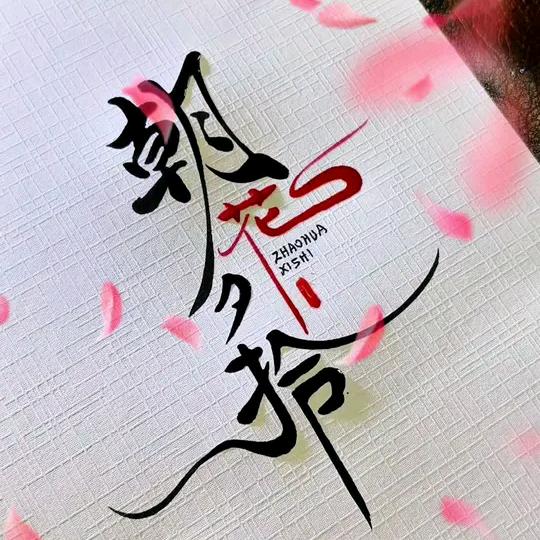 朝
花
夕
拾
ZHAOHUA
XISHI